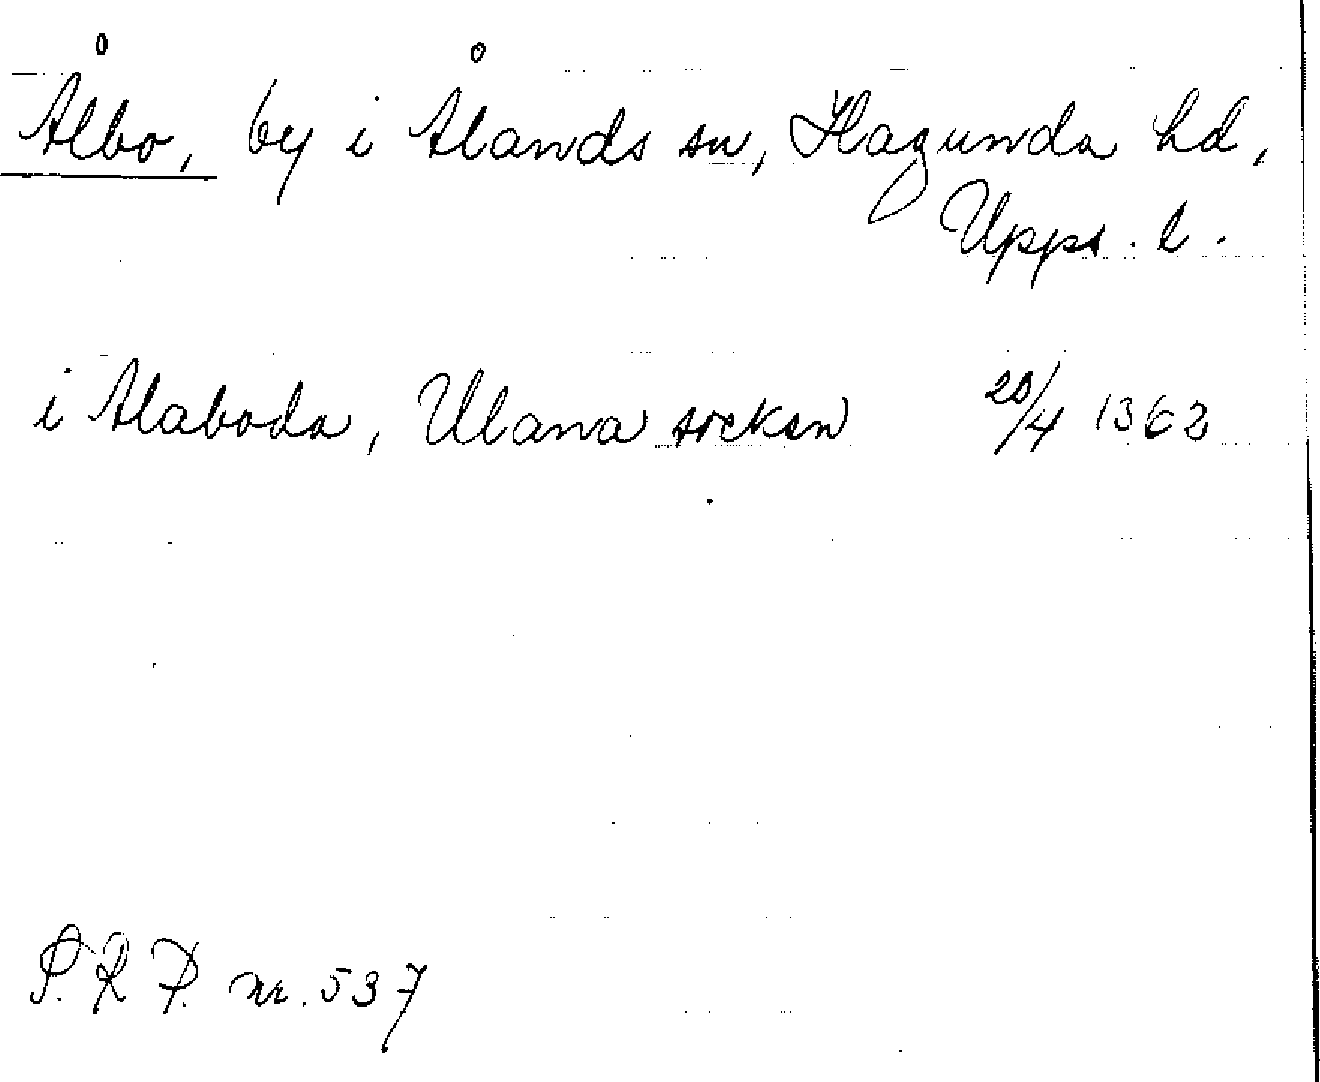 Ålbo, by i Ålands sn, Hagunda hd,
Upps. l.
i Alaboda, Ulana socken 20/4 1362
S.R.P. nr. 537